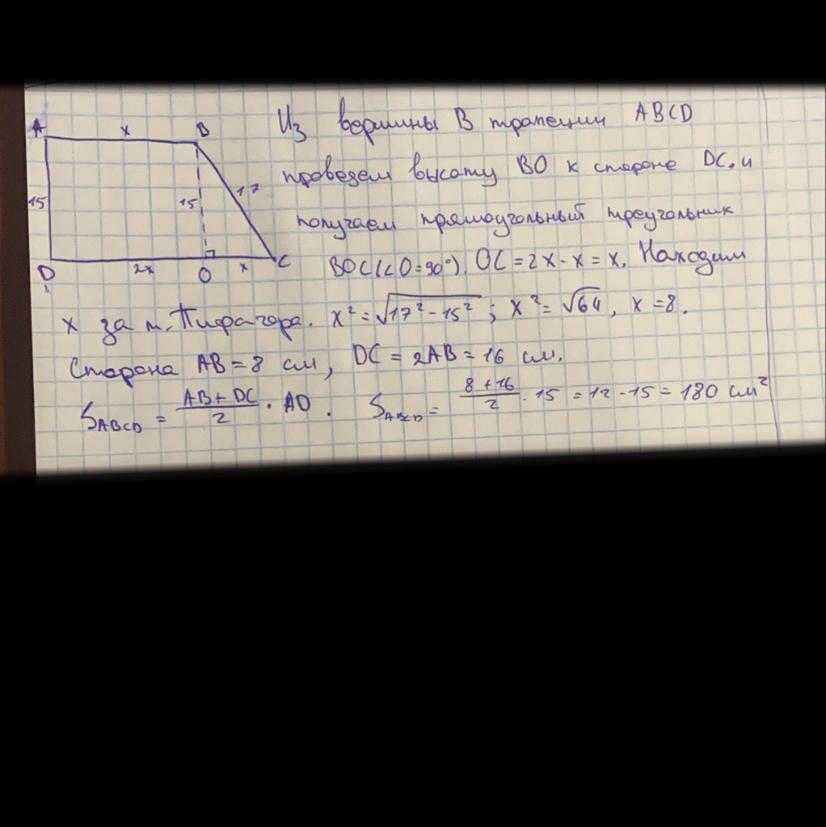 A x B
15 15 17
D 2x O x C
Из вершины B трапеции ABCD
проведем высоту BO к стороне DC. и
получаем прямоугольный треугольник
BOC (<O=90°). OC = 2x - x = x. Находим
x за т. Пифагора. x² = √17² - 15² ; x² = √64, x = 8.
Сторона AB = 8 см, DC = 2AB = 16 см.
S ABCD = AB + DC / 2 · AD. S ABCD = 8 + 16 / 2 · 15 = 12 · 15 = 180 см²